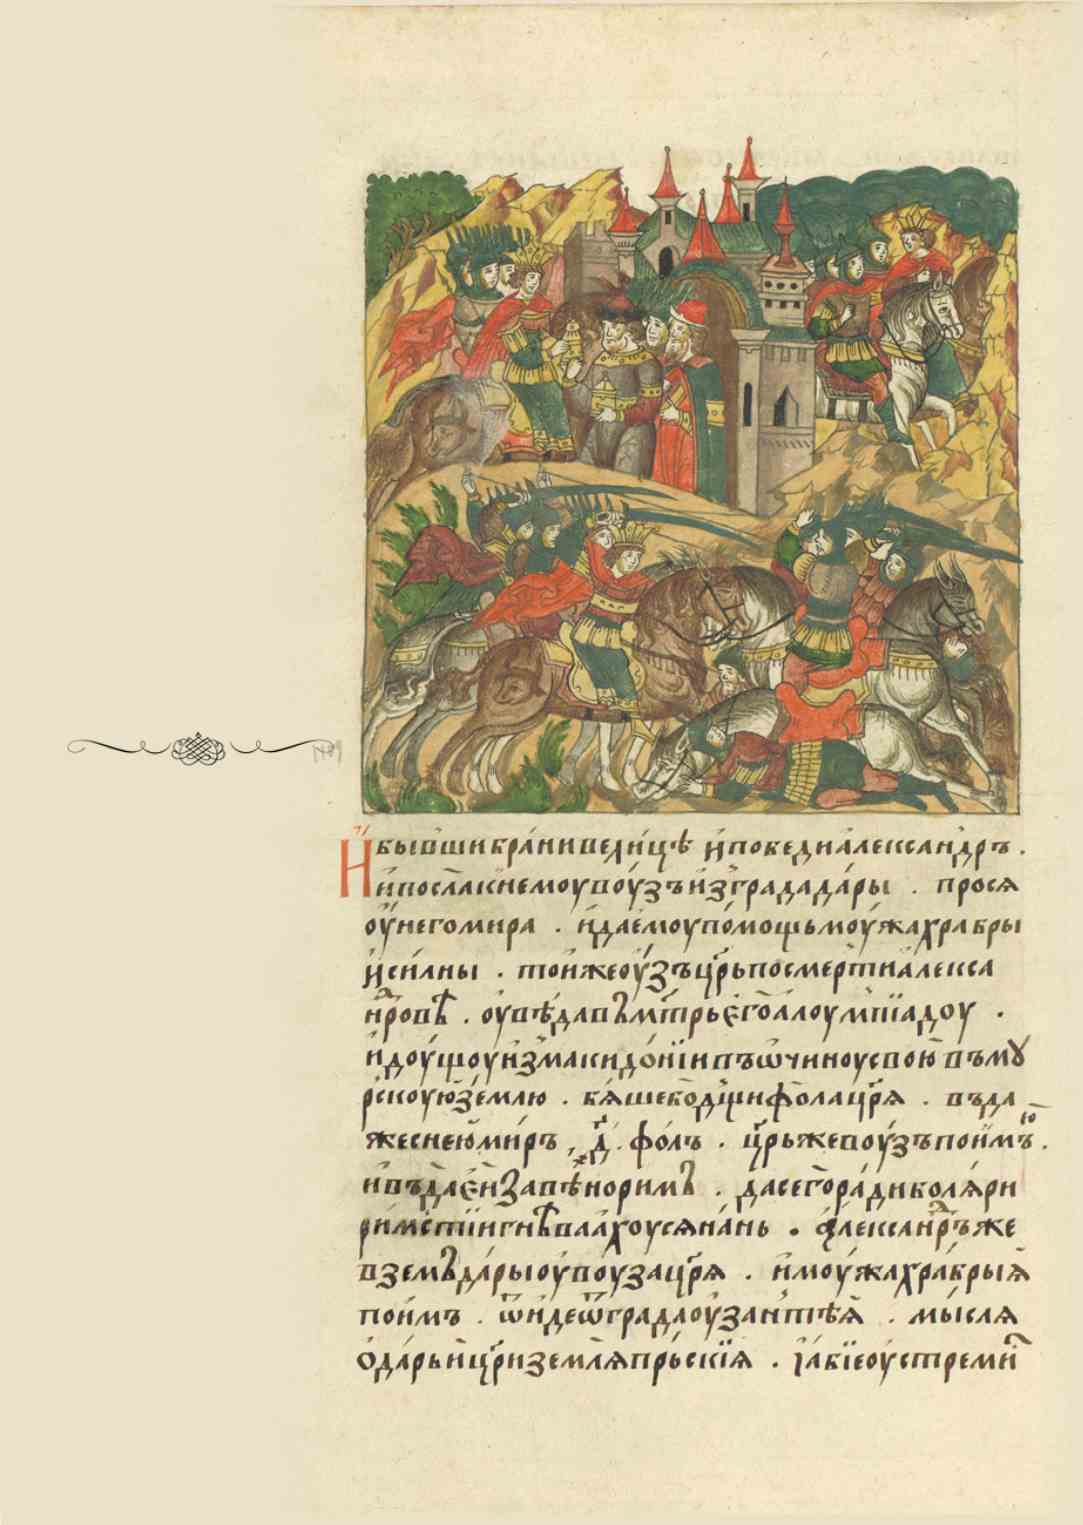 И҆бывши бра́ни вели́цѣ и҆ победи а҆леѯандръ .
и҆ посла к немоу воу́зъ из града да́ры . прося
оу́ него мира . и҆ дае́моу по́мощь моу́жа храбры
и҆ си́лны . тои же оу́зъ цр҃ь по сме́рти а҆лекса
нⷣровѣ . оу҆вѣ́давъ мт҃рь е҆го̀ а҆лоумпїа́доу .
идоу́щоу из макидо́нїи въ ѡ҆чиноу свою въ мꙋ
рскоую зе́млю . бя́ше бо дщ҃и фо́ла цр҃я . въда
же с нею ми́ръ , д҃ . фо́лъ . цр҃ь же воу́зъ пои́мъ ю .
и въда̀ е҆й за вѣ́но римъ . да сего ра́ди коля́ри
ри́мстїи гнѣ́вааху́ся на́нь . а҆леѯанⷣръ же
вземъ да́ры оу҆ воу́за цр҃я . и҆ моу́жа хра́брыя҆
пои́мъ . ѿи́де ѿ града оу́за а҆нтїѣ́я . мы́сля
о҆ да́рьи цр҃и земля̀ пръскїя . і҆ а́бїе оу҆стреми